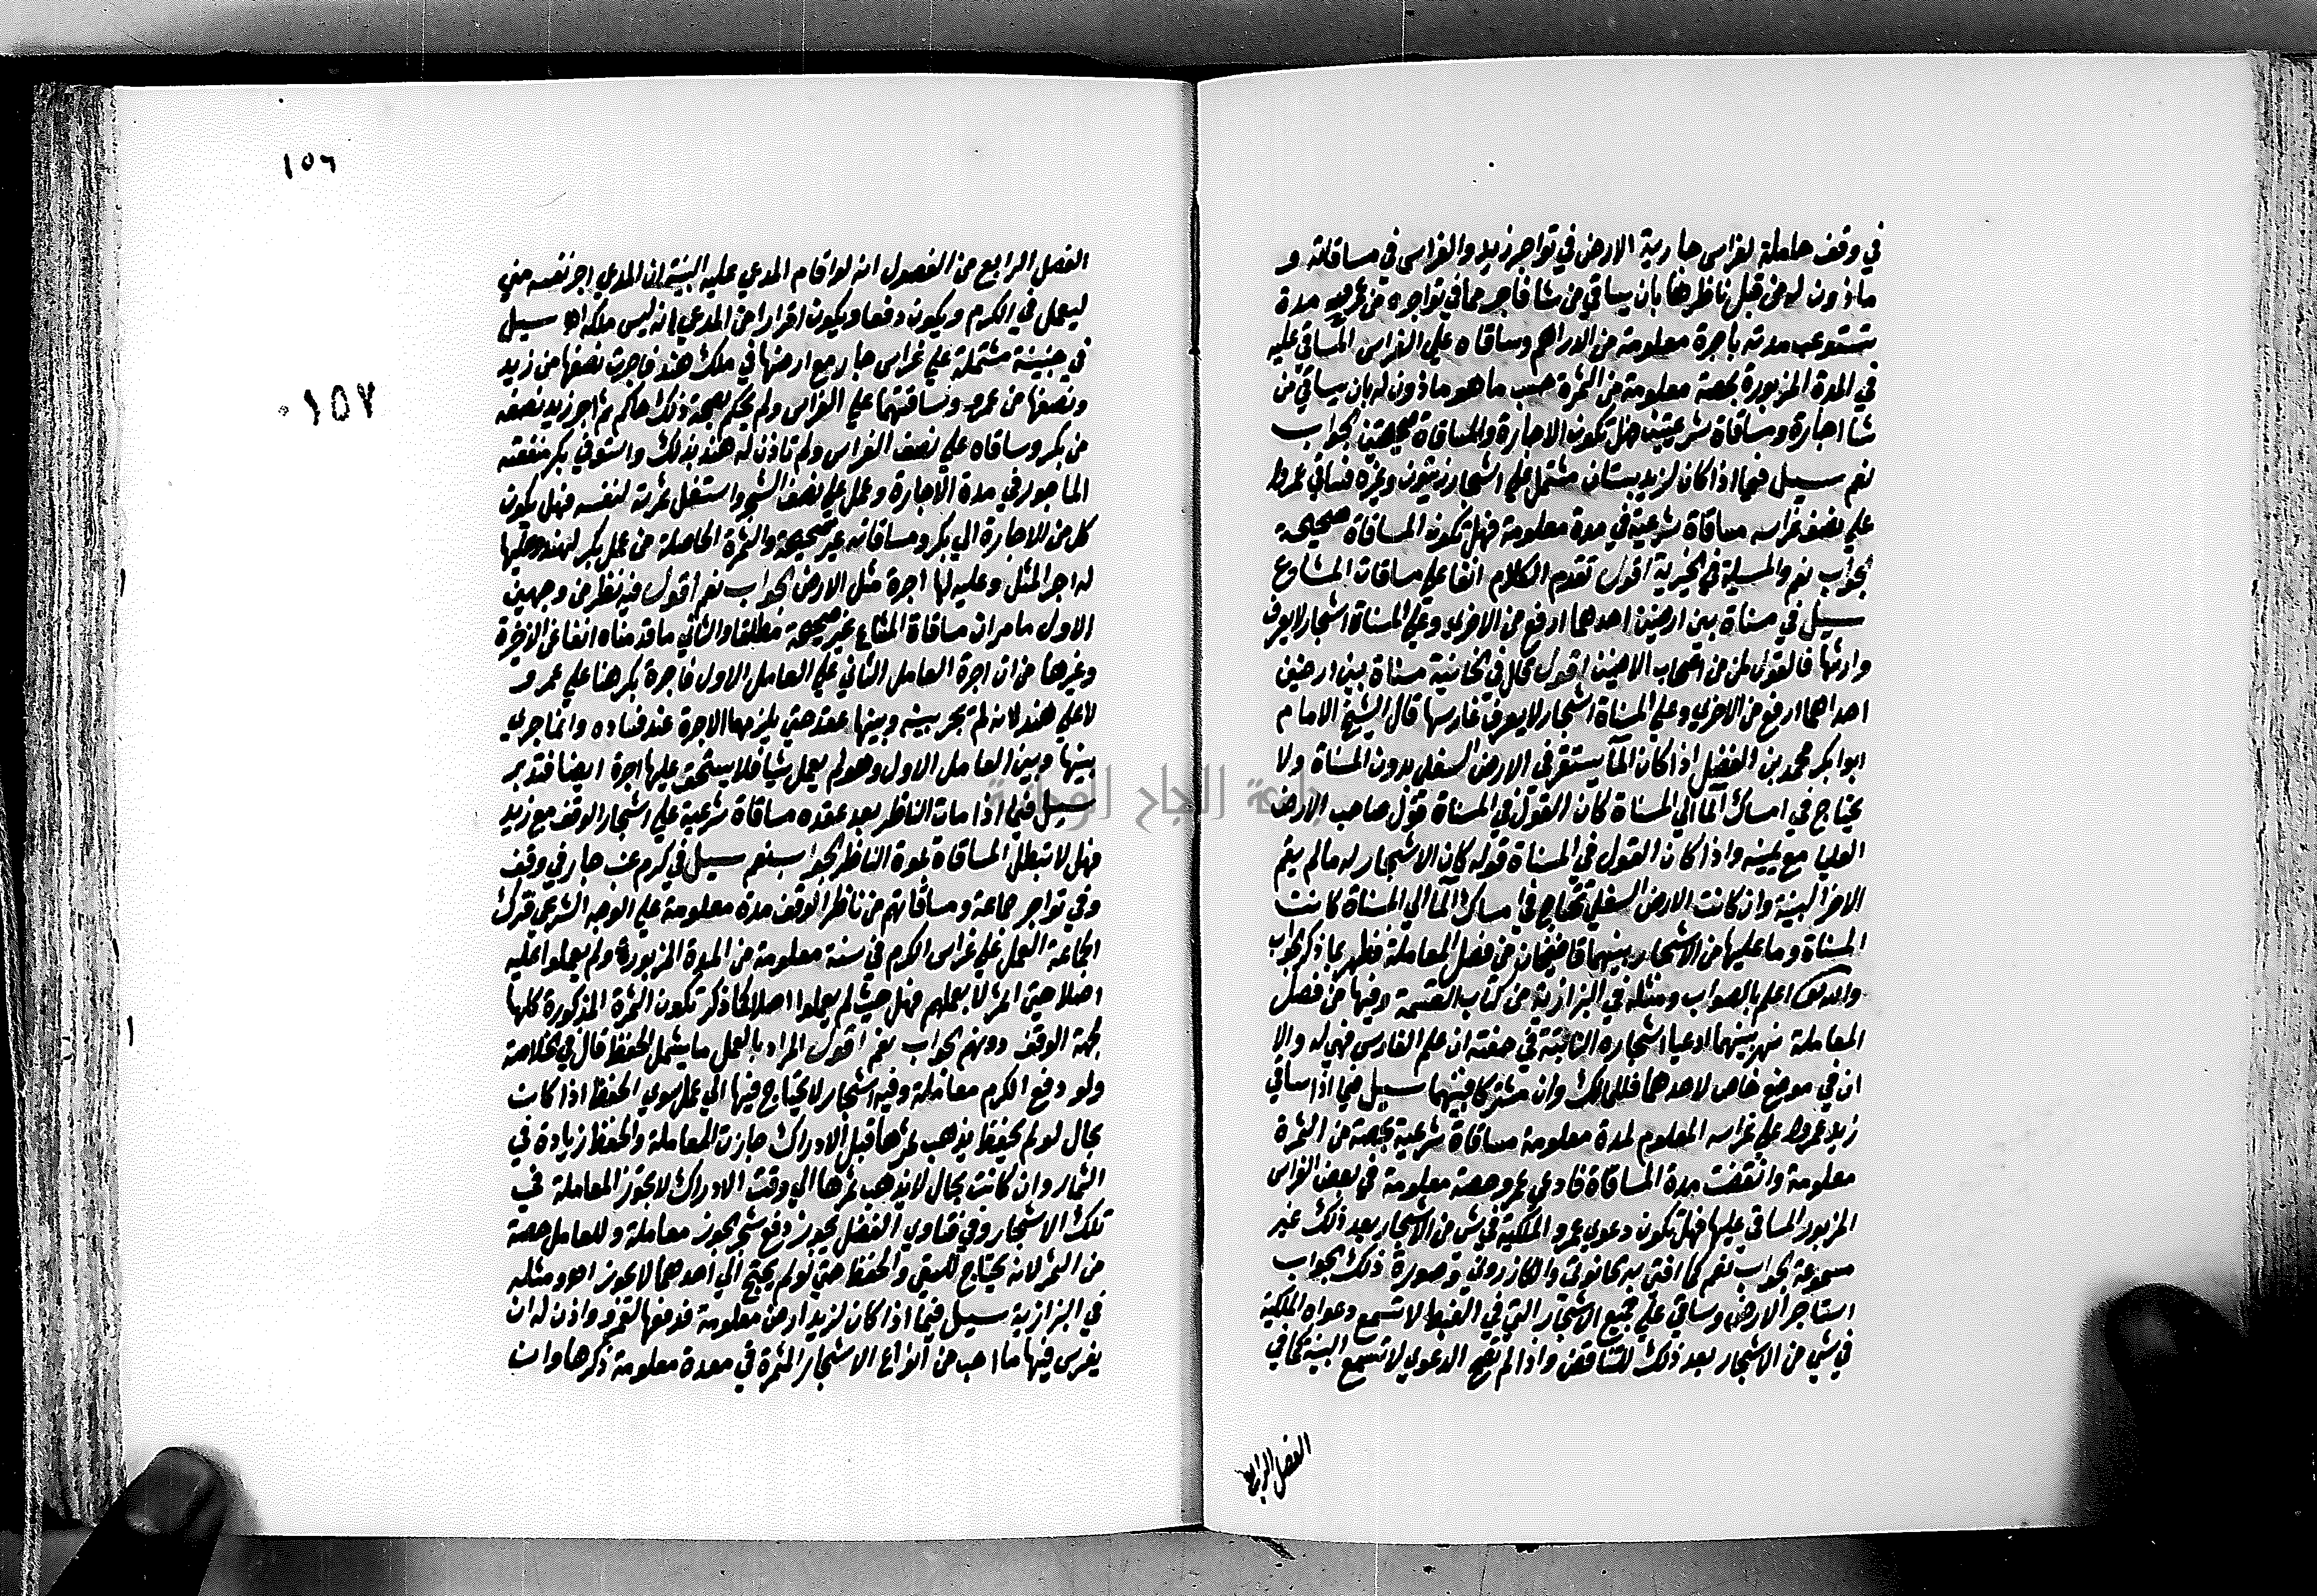 في وقف حاملة لغراس جارية الارض في تواجر زيد والغراس في مساقاته و
ماذون له من قبل ناظرها بان يساقي من شا فاجر ما في تواجره من عمرو مدة
تستوعب مدته باجرة معلومة من الدراهم وساقاه علي الغراس المساقي عليه
في المدة المزبورة بحصة معلومة من الثمرة حسب ما هو ماذون له بان يساقي من
شا اجارة ومساقاة شرعيتين هل تكون الاجارة والمساقاة صحيحتين الجواب
نعم سيل فيما اذا كان لزيد بستان مشتمل علي اشجار زيتون وغيره فساقي عمروا
علي نصف غراسه مساقاة شرعية في مدة معلومة فهل تكون المساقاة صحيحة
الجواب نعم والمسيلة في الخيرية اقول تقدم الكلام انفا علي مساقات المشاع
سيل في مسناة بين ارضين احدهما ارفع من الاخري وعلي المسناة اشجار لا يعرف
وارثها فالقول لمن من اصحاب الاضيين اقول قال في الخانية مسناة بين ارضين
احداهما ارفع من الاخري وعلي المسناة اشجار لا يعرف غارسها قال الشيخ الامام
ابوابكر محمد بن الفضل اذا كان الما يستقر في الارض السفلي بدون المسناة ولا
يحتاج في امساك الما الي المسناة كان القول في المسناة قول صاحب الارض
العليا مع يمينه واذا كان القول في المسناة قوله كان الاشجار له مالم يقم
الاخر البينة وان كانت الارض السفلي تحتاج في امساك الما الي المسناة كانت
المسناة وما عليها من الاشجار بينهما قاضيخان من فصل المعاملة فظهر بما ذكر الجواب
والله تع اعلم بالصواب ومثله في البزازية من كتاب القسمة وفيها من فصل
المعاملة نهر بينهما ادعيا اشجاره النابتة في ضفته ان علم الغارس فهي له والا
ان في موضع خاص لاحدهما فللمالك وان مشتركا فبينهما سيل فيما اذا ساقي
زيد عمروا علي غراسه المعلوم لمدة معلومة مساقاة شرعية بحصة من الثمرة
معلومة وانقضت مدة المساقاة فادعي عمرو حصة معلومة في بعض الغراس
المزبور المساقي عليها فهل تكون دعوي عمرو الملكية في شي من الاشجار بعد ذلك غير
مسموعة الجواب نعم كما افتي به الحانوتي والكازروني وصورة ذلك الجواب
استاجر الارض وساقي علي جميع الاشجار التي في الغيط لا تسمع دعواه الملكية
في شي من الاشجار بعد ذلك للتناقض واذا لم تصح الدعوي لا تسمع البينة كما في
الفصل الرابع
١٥٦
١٥٧
الفصل الرابع من الفصول انه لو اقام المدعي عليه البينة ان المدعي اجر نفسه مني
ليعمل في الكرم ويكون دفعا ويكون اقرارا من المدعي بانه ليس ملكه اه سيل
في جنينة مشتملة علي غراس جار مع ارضها في ملك هند فاجرت نصفها من زيد
ونصفها من عمرو وساقتهما علي الغراس ولم يحكم بصحة ذلك حاكم ثم اجر زيد نصفه
من بكر وساقاه علي نصف الغراس ولم تاذن له هند بذلك واستوفي بكر منفعته
الماجور في مدة الاجارة وعمل علي نصف الشجر واستغل ثمرته لنفسه فهل يكون
كل من الاجارة الي بكر ومساقاته غير صحيحة والثمرة الحاصلة من عمل بكر لهند وعليها
له اجر المثل وعليه لها اجرة مثل الارض الجواب نعم اقول فيه نظر من وجهين
الاول ما مر ان مساقاة المشاع غير صحيحة مطلقا والثاني ما قدمناه انفا عن الذخيرة
وغيرها من ان اجرة العامل الثاني علي العامل الاول فاجرة بكر هنا علي عمرو
لا علي هند لانه لم يجر بينه وبينها عقد حتي يلزمها الاجرة عند فساده وانما جري
بينها وبين العامل الاول وهو لم يعمل شيا فلا يستحق عليها اجرة ايضا فتدبر
سيل فيما اذا مات الناظر بعد عقده مساقاة شرعية علي اشجار الوقف مع زيد
فهل لا تبطل المساقاة بموت الناظر الجواب نعم سيل في كرم عنب جار في وقف
وفي تواجر جماعة ومساقاتهم من ناظر الوقف مدة معلومة علي الوجه الشرعي فترك
الجماعة العمل علي غراس الكرم في سنة معلومة من المدة المزبورة ولم يعملوا عليه
اصلا حتي اثمر لا بعملهم فهل حيث لم يعملوا اصلا كما ذكر تكون الثمرة المذكورة كلها
لجهة الوقف دونهم الجواب نعم اقول المراد بالعمل ما يشمل الحفظ قال في الخلاصة
ولو دفع الكرم معاملة وفيه اشجار لا يحتاج فيها الي عمل سوي الحفظ اذا كانت
بحال لو لم يحفظ يذهب ثمرها قبل الادراك جازت المعاملة والحفظ زيادة في
الثمار وان كانت بحال لا يذهب ثمرها الي وقت الادراك لا تجوز المعاملة في
تلك الاشجار وفي فتاوي الفضل يجوز دفع شجر الجوز معاملة وللعامل حصة
من الثمر لانه يحتاج للسقي والحفظ حتي لو لم يحتج الي احدهما لا يجوز اه ومثله
في البزازية سيل فيما اذا كان لزيد ارض معلومة فدفعها لعمرو واذن له ان
يغرس فيها ما احب من انواع الاشجار المثمرة في معدة معلومة ذكرها وان